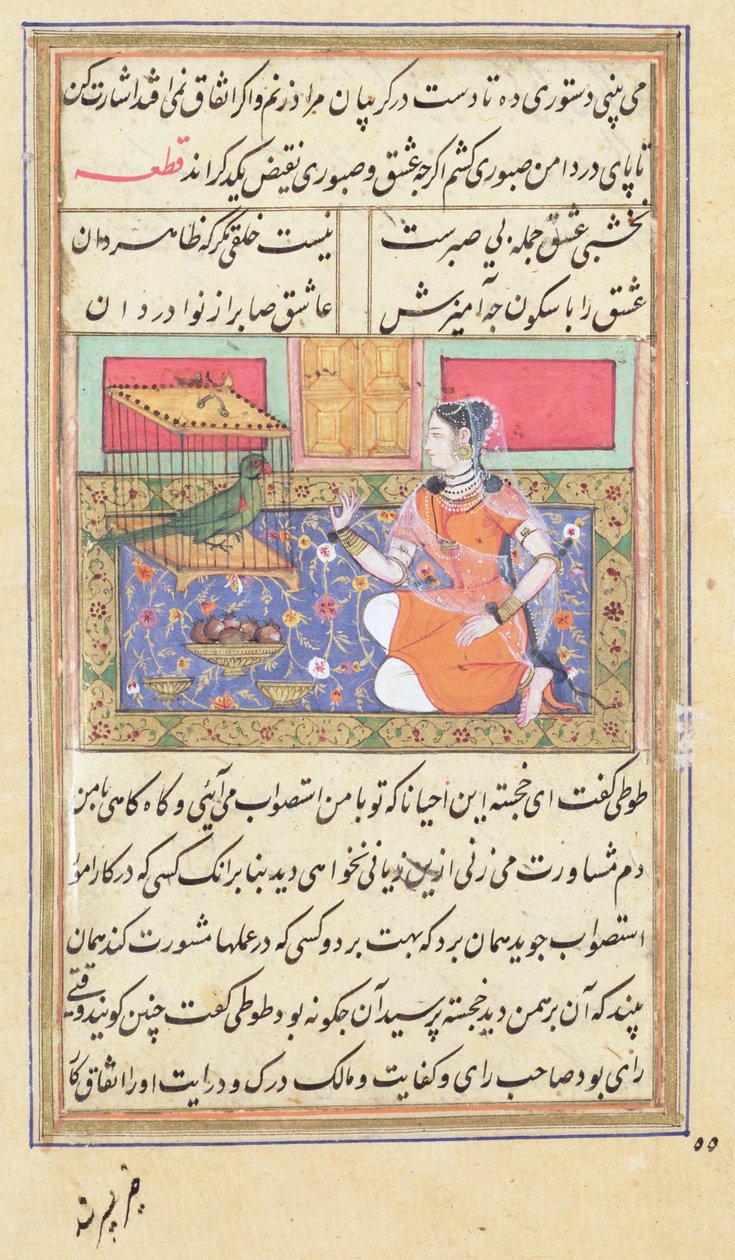 می بینی دستوری ده تا دست در کریبان مراد زنم و اکر اتفاق نمی افتد اشارت کن
تا پای در دامن صبوری کشم اکرچه عشق و صبوری نقیض یکدیکراند قطعه
نخشبی عشق جمله بی صبرست نیست خلقی مکر که ظاهر دان
عشق را با سکون چه آمیزش عاشق صابر از نوادر دان
طوطی کفت ای خجسته این احیانا که تو با من استصواب می آیٔی و کاه کاهی با من
دم مشاورت می زنی ازین زیانی نخواهی دید بنا برانک کسی که در کارها
استصواب جوید همان برد که بهت برد و کسی که در عملها مشورت کند همان
بیند که آن برهمن دید خجسته پرسید آن چکونه بود طوطی کفت چنین کویند وقتی
رای بود صاحب رای و کفایت و مالک درک و درایت او را اتفاق کار
۵۵